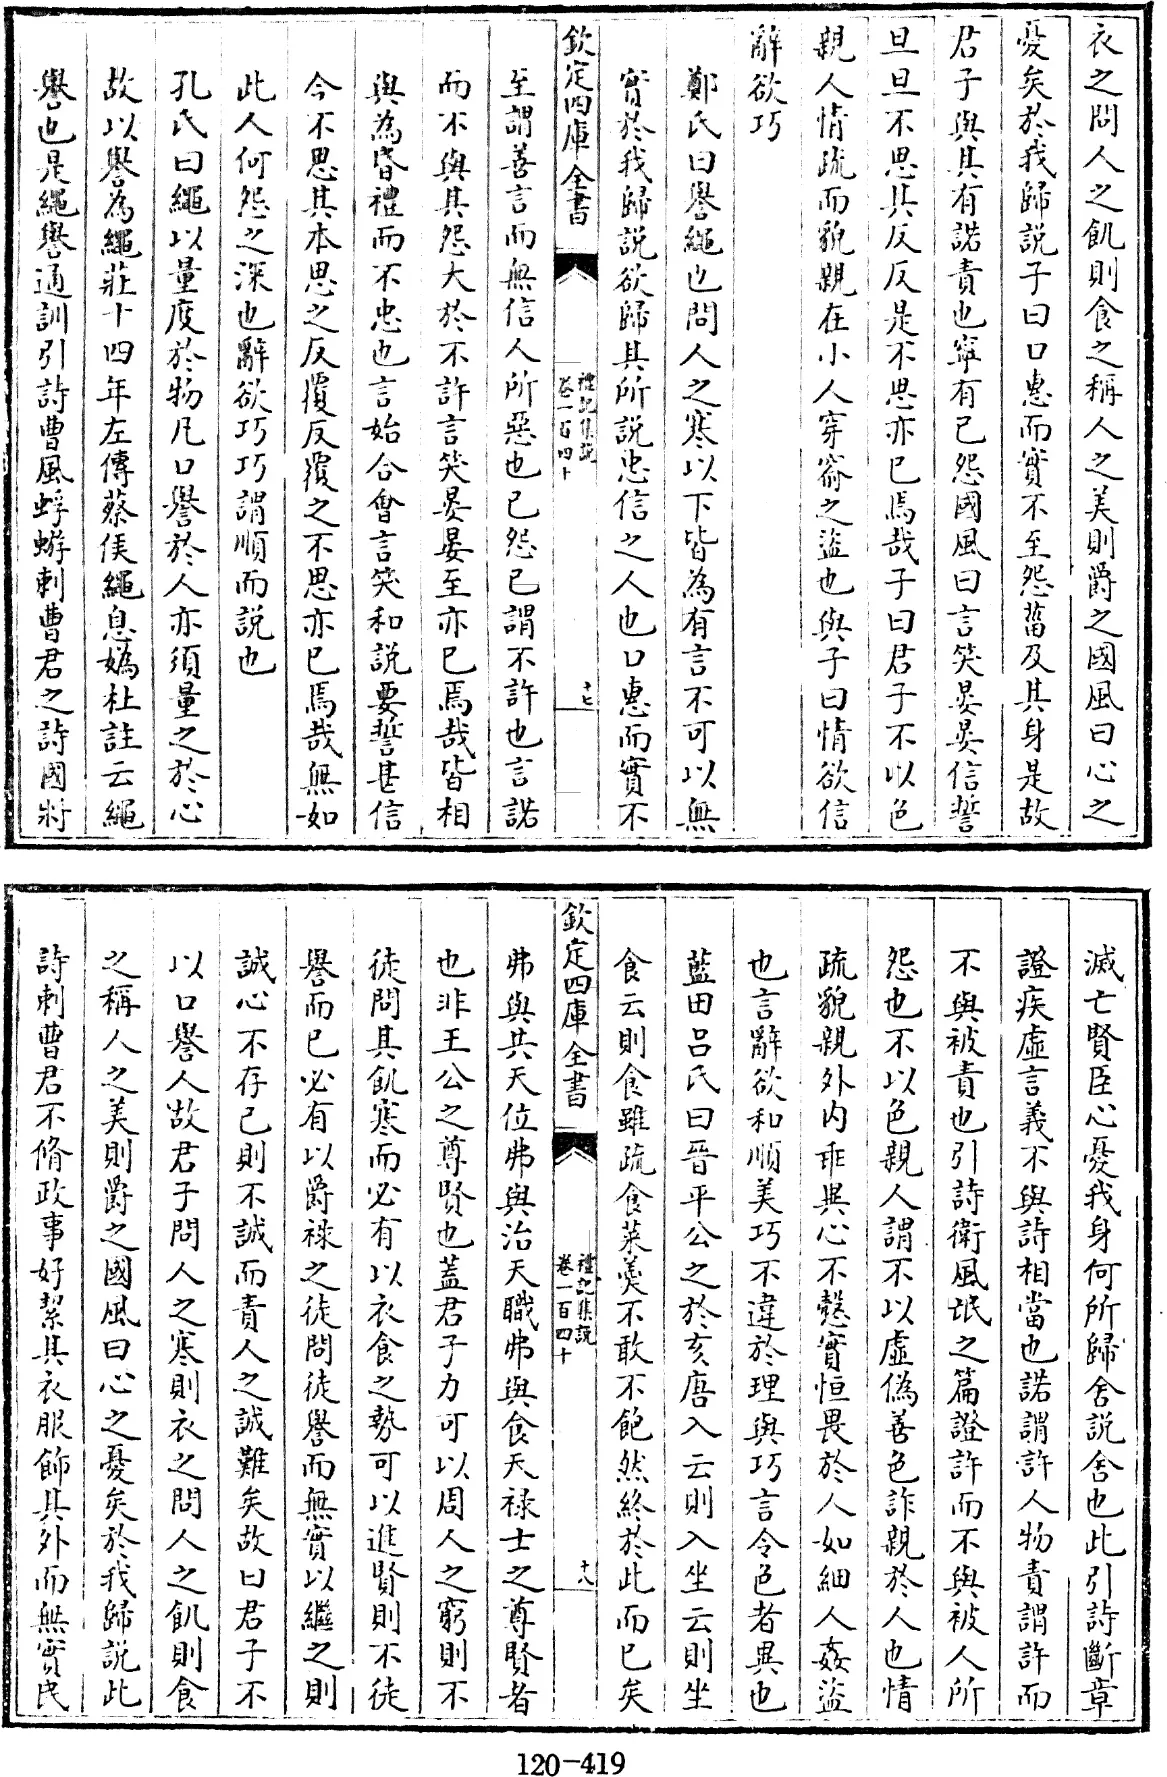 衣之問人之飢則食之稱人之美則爵之國風曰心之
憂矣於我歸說子曰口惠而實不至怨菑及其身是故
君子與其有諾責也寧有已怨國風曰言笑晏晏信誓
旦旦不思其反反是不思亦已焉哉子曰君子不以色
親人情疏而貌親在小人穿窬之盜也與子曰情欲信
辭欲巧
鄭氏曰譽繩也問人之寒以下皆為有言不可以無
實於我歸說欲歸其所說忠信之人也口惠而實不
欽定四庫全書
禮記集說
卷一百四十
十七
至謂善言而無信人所惡也已怨已謂不許也言諾
而不與其怨大於不許言笑晏晏至亦已焉哉皆相
與為昏禮而不忠也言始合會言笑和說要誓甚信
今不思其本思之反覆反覆之不思亦已焉哉無如
此人何怨之深也辭欲巧巧謂順而說也
孔氏曰繩以量度於物凡口譽於人亦須量之於心
故以譽為繩莊十四年左傳蔡侯繩息媯杜註云繩
譽也是繩譽通訓引詩曹風蜉蝣刺曹君之詩國將
滅亡賢臣心憂我身何所歸舍說舍也此引詩斷章
證疾虛言義不與詩相當也諾謂許人物責謂許而
不與被責也引詩衛風氓之篇證許而不與被人所
怨也不以色親人謂不以虛偽善色詐親於人也情
疏貌親外內乖異心不慤實恒畏於人如細人姦盜
也言辭欲和順美巧不違於理與巧言令色者異也
藍田呂氏曰晉平公之於亥唐入云則入坐云則坐
食云則食雖疏食菜羹不敢不飽然終於此而已矣
欽定四庫全書
禮記集說
卷一百四十
十八
弗與共天位弗與治天職弗與食天祿士之尊賢者
也非王公之尊賢也蓋君子力可以周人之窮則不
徒問其飢寒而必有以衣食之勢可以進賢則不徒
譽而已必有以爵祿之徒問徒譽而無實以繼之則
誠心不存已則不誠而責人之誠難矣故曰君子不
以口譽人故君子問人之寒則衣之問人之飢則食
之稱人之美則爵之國風曰心之憂矣於我歸說此
詩刺曹君不脩政事好絜其衣服飾其外而無實民
120-419